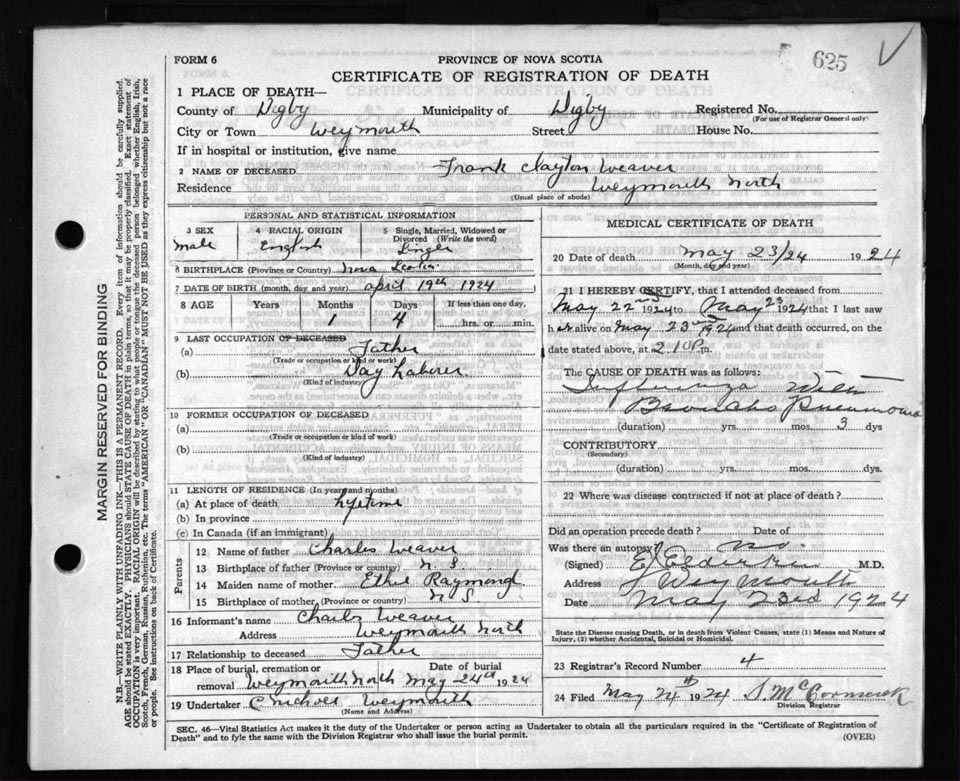 625
FORM 6
PROVINCE OF NOVA SCOTIA
CERTIFICATE OF REGISTRATION OF DEATH
1 PLACE OF DEATH—
County of Digby Municipality of Digby Registered No.
(For use of Registrar General only)
City or Town Weymouth Street House No.
If in hospital or institution, give name
2 NAME OF DECEASED Frank Clayton Weaver
Residence Weymouth North
(Usual place of abode)
PERSONAL AND STATISTICAL INFORMATION
3 SEX 4 RACIAL ORIGIN 5 Single, Married, Widowed or
Divorced (Write the word)
male English Single
6 BIRTHPLACE (Province or Country) Nova Scotia
7 DATE OF BIRTH (month, day and year) April 19th 1924
8 AGE Years Months Days If less than one day,
1 4 hrs. or min.
9 LAST OCCUPATION OF DECEASED
(a) Father
(Trade or occupation or kind or work)
(b) Day Laborer
(Kind of industry)
10 FORMER OCCUPATION OF DECEASED
(a)
(Trade or occupation or kind of work)
(b)
(Kind of industry)
11 LENGTH OF RESIDENCE (In years and months)
(a) At place of death lifetime
(b) In province
(c) In Canada (if an immigrant)
Parents
12 Name of father Charles Weaver
13 Birthplace of father (Province or country) N.S.
14 Maiden name of mother Ethel Raymond
15 Birthplace of mother (Province or country) N S
16 Informant's name Charles Weaver
Address Weymouth North
17 Relationship to deceased Father
18 Place of burial, cremation or Date of burial
removal Weymouth North May 24th 1924
19 Undertaker Weymouth
(Name and Address)
MEDICAL CERTIFICATE OF DEATH
20 Date of death May 23/24 1924
(Month, day and year)
21 I HEREBY CERTIFY, that I attended deceased from
May 22nd 1924 to May 23 1924 that I last saw
h alive on May 23rd 1924 and that death occurred, on the
date stated above, at 2.10 P.m.
The CAUSE OF DEATH was as follows:
Influenza with
Broncho Pneumonia
(duration) yrs. mos. 3 dys
CONTRIBUTORY
(Secondary)
(duration) yrs. mos. dys.
22 Where was disease contracted if not at place of death?
Did an operation precede death? Date of
Was there an autopsy? no.
(Signed) M.D.
Address Weymouth
Date May 23rd 1924
State the Disease causing Death, or in death from Violent Causes, state (1) Means and Nature of
Injury, (2) whether Accidental, Suicidal or Homicidal.
23 Registrar's Record Number 4
24 Filed May 24th 1924 S. McCormick
Division Registrar
SEC. 46—Vital Statistics Act makes it the duty of the Undertaker or person acting as Undertaker to obtain all the particulars required in the "Certificate of Registration of
Death" and to fyle the same with the Division Registrar who shall issue the burial permit.
(OVER)
MARGIN RESERVED FOR BINDING
N.B.—WRITE PLAINLY WITH UNFADING INK—THIS IS A PERMANENT RECORD. Every item of information should be carefully supplied.
AGE should be stated EXACTLY. PHYSICIANS should STATE CAUSE OF DEATH in plain terms, so that it may be properly classified. Exact statement of
OCCUPATION is very important. RACIAL ORIGIN will be described by stating to what people or tongue the deceased person belonged whether English, Irish,
Scotch, French, German, Russian, Ruthenian, etc. The terms "AMERICAN" OR "CANADIAN" MUST NOT BE USED as they express citizenship but not a race
or people. See instructions on back of Certificate.